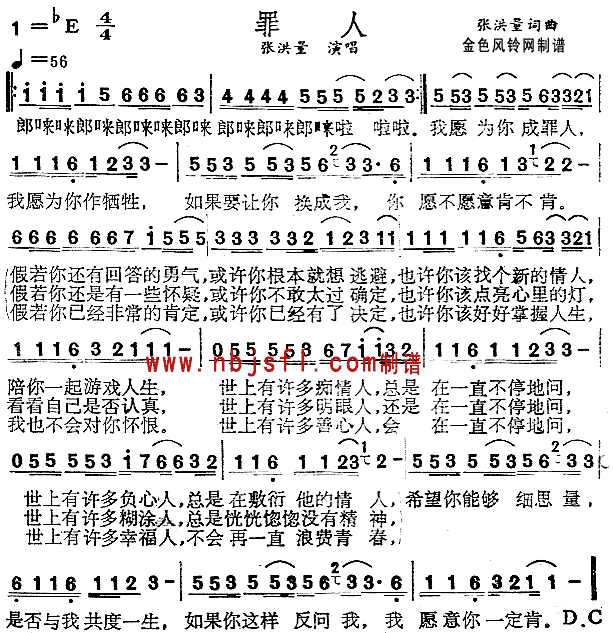 1=♭E 4/4 罪人 张洪量词曲
张洪量 演唱 金色风铃网制谱
♩=56
i i i i 5 6 6 6 6 3 | 4 4 4 4 5 5 5 5 2 3 3 :‖ 5 5 3 5 5 3 5 6 3 3 2 1 |
郎唻唻郎唻郎唻郎唻 郎唻郎唻郎唻啦 啦啦。我愿 为你 成罪人，
1 1 1 6 1 2 3 3 - | 5 5 3 5 5 3 5 6 2 3 3 · 6 | 1 1 1 6 1 3 1 2 2 - |
我愿为你作牺牲， 如果要让你 换成我， 你 愿不愿意肯不肯。
6 6 6 6 6 6 7 i 5 5 5 | 3 3 3 3 3 2 1 2 3 1 1 | 1 1 1 1 1 6 5 6 3 3 2 1 |
假若你还有回答的勇气，或许你根本就想 逃避，也许你该找个新的情人，
假若你还是有一些怀疑，或许你不敢太过 确定，也许你该点亮心里的灯，
假若你已经非常的肯定，或许你已经有了 决定，也许你该好好掌握人生，
1 1 1 6 3 2 1 1 1 - | 0 5 5 5 5 3 6 7 i i 3 2 | 1 1 6 1 1 2 3 3 - |
www.nbjsfl.com制谱
陪你一起游戏人生， 世上有许多痴情人，总是 在一直不停地问，
看看自己是否认真， 世上有许多明眼人，还是 在一直不停地问，
我也不会对你怀恨。 世上有许多善心人，会 在一直不停地问，
0 5 5 5 5 3 i 7 6 6 3 2 | 1 1 6 1 1 2 3 1 2 - | 5 5 3 5 5 3 5 6 2 3 3 |
世上有许多负心人，总是 在敷衍 他的情 人，希望你能够 细思 量，
世上有许多糊涂人，总是恍恍惚惚没有精 神，
世上有许多幸福人，不会 再一直 浪费青 春，
6 1 1 1 6 1 2 3 3 - | 5 5 3 5 5 3 5 6 2 3 3 · 6 | 1 1 1 6 3 2 1 1 - |
是否与我共度一生，如果你这样 反问 我，我 愿意你一定肯。D.C